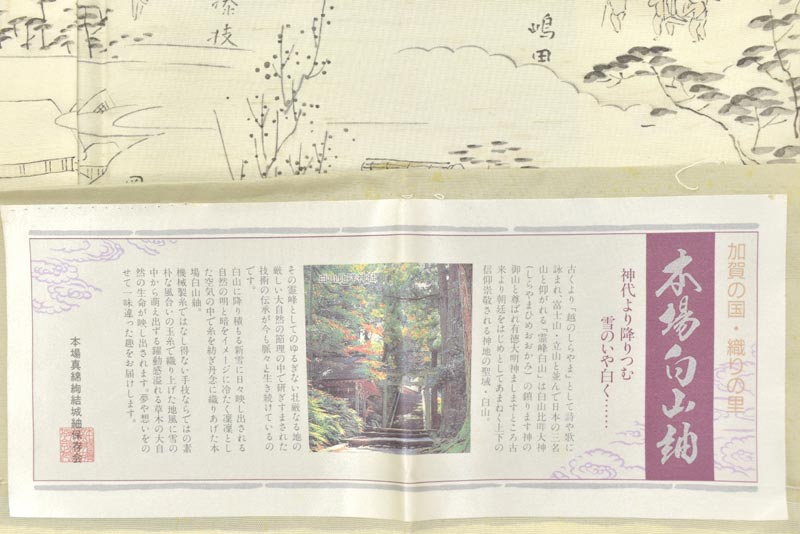 藤枝
嶋田
加賀の国・織りの里
本場白山紬
神代より降りつむ
雪のいや白く……
古くより「越のしらやま」として詩や歌に
詠まれ、富士山・立山と並んで日本の三名
山と仰がれる「霊峰白山」は白山比咩大神
(しらやまひめおおかみ)の鎮ります神の
御山と尊ばれ有徳大明神ましますところ古
来より朝廷をはじめとしてあまねく上下の
信仰崇敬される神地の聖域・白山。
その霊峰としてのゆるぎない壮厳なる地の
厳しい大自然の節理の中で研ぎすまされた
技術の伝承が今も脈々と生き続けているの
です。
白山に降り積もる新雪に日々映し出される
自然の明と暗をイメージに冷たく凜凜とし
た空気の中で糸を紡ぎ丹念に織りあげた本
場白山紬。
機械製糸ではなし得ない手技ならではの素
朴な風合いの玉糸で織り上げた地風に雪の
中から萌え出ずる躍動感溢れる草木の大自
然の生命が映し出されます。夢や想いをの
せて一味違った趣をお届けします。
本場真綿絢結城紬保存会